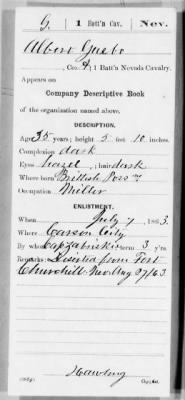 G. 1 Batt'n Cav. Nev.
Albert Guebo
, Co. A, 1 Batt'n Nevada Cavalry.
Appears on
Company Descriptive Book
of the organization named above.
DESCRIPTION.
Age 35 years; height 5 feet 10 inches.
Complexion dark
Eyes hazel; hair dark
Where born British Poss
Occupation Miller
ENLISTMENT.
When July 7, 1863.
Where Carson City
By whom term 3 y'rs.
Remarks: Deserted from Fort
Churchill Nev Aug 07/63
Copyist.